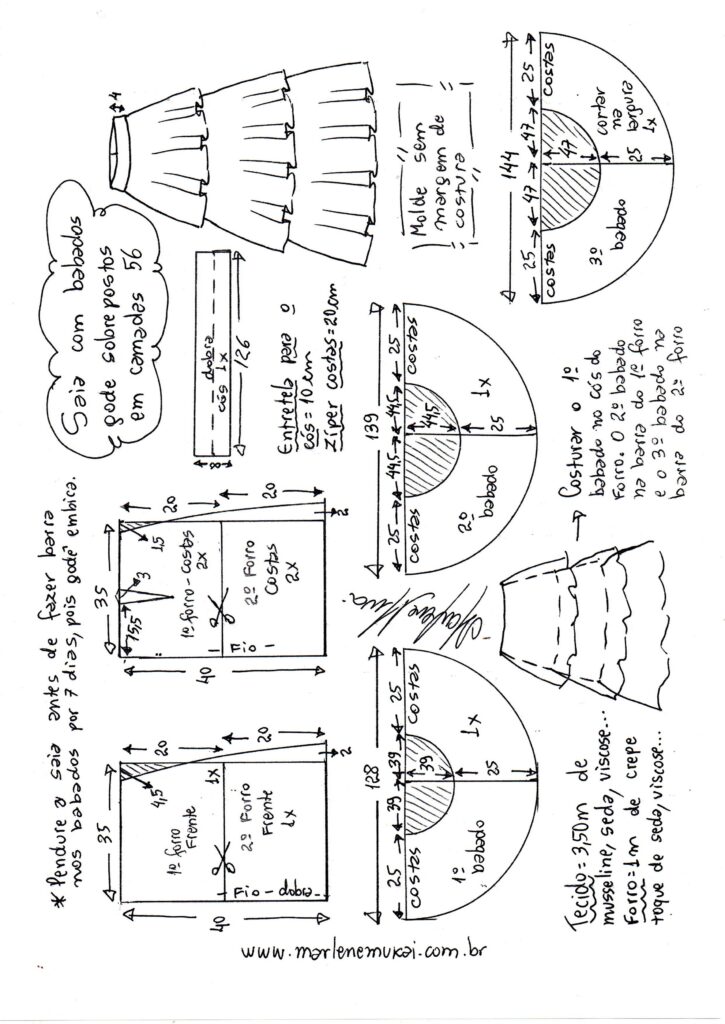 * Pendure a saia antes de fazer barra
nos babados por 7 dias, pois godê embica.
Saia com babados
godê sobrepostos
em camadas 56
4
35
4,5
20
20
2
40
1º forro
Frente
1x
2º Forro
Frente
1x
Fio - dobra
35
75,5
3
1,5
20
20
2
40
1º forro - costas
2x
2º Forro
Costas
2x
Fio
dobra
cós 1x
8
126
Entretela para o
cós = 10 cm
Zíper costas = 20cm
Molde sem
margem de
costura
128
25
39
39
25
costas
costas
39
25
1º
babado
1x
139
25
44,5
44,5
25
costas
costas
44,5
25
2º
babado
1x
144
25
47
47
25
costas
costas
47
25
3º
babado
cortar
na
largura
1x
Marlene Mukai
Tecido = 3,50m de
musseline, seda, viscose...
Forro = 1m de crepe
toque de seda, viscose...
Costurar o 1º
babado no cós do
Forro. O 2º babado
na barra do 1º forro
e o 3º babado na
barra do 2º forro
www.marlenemukai.com.br